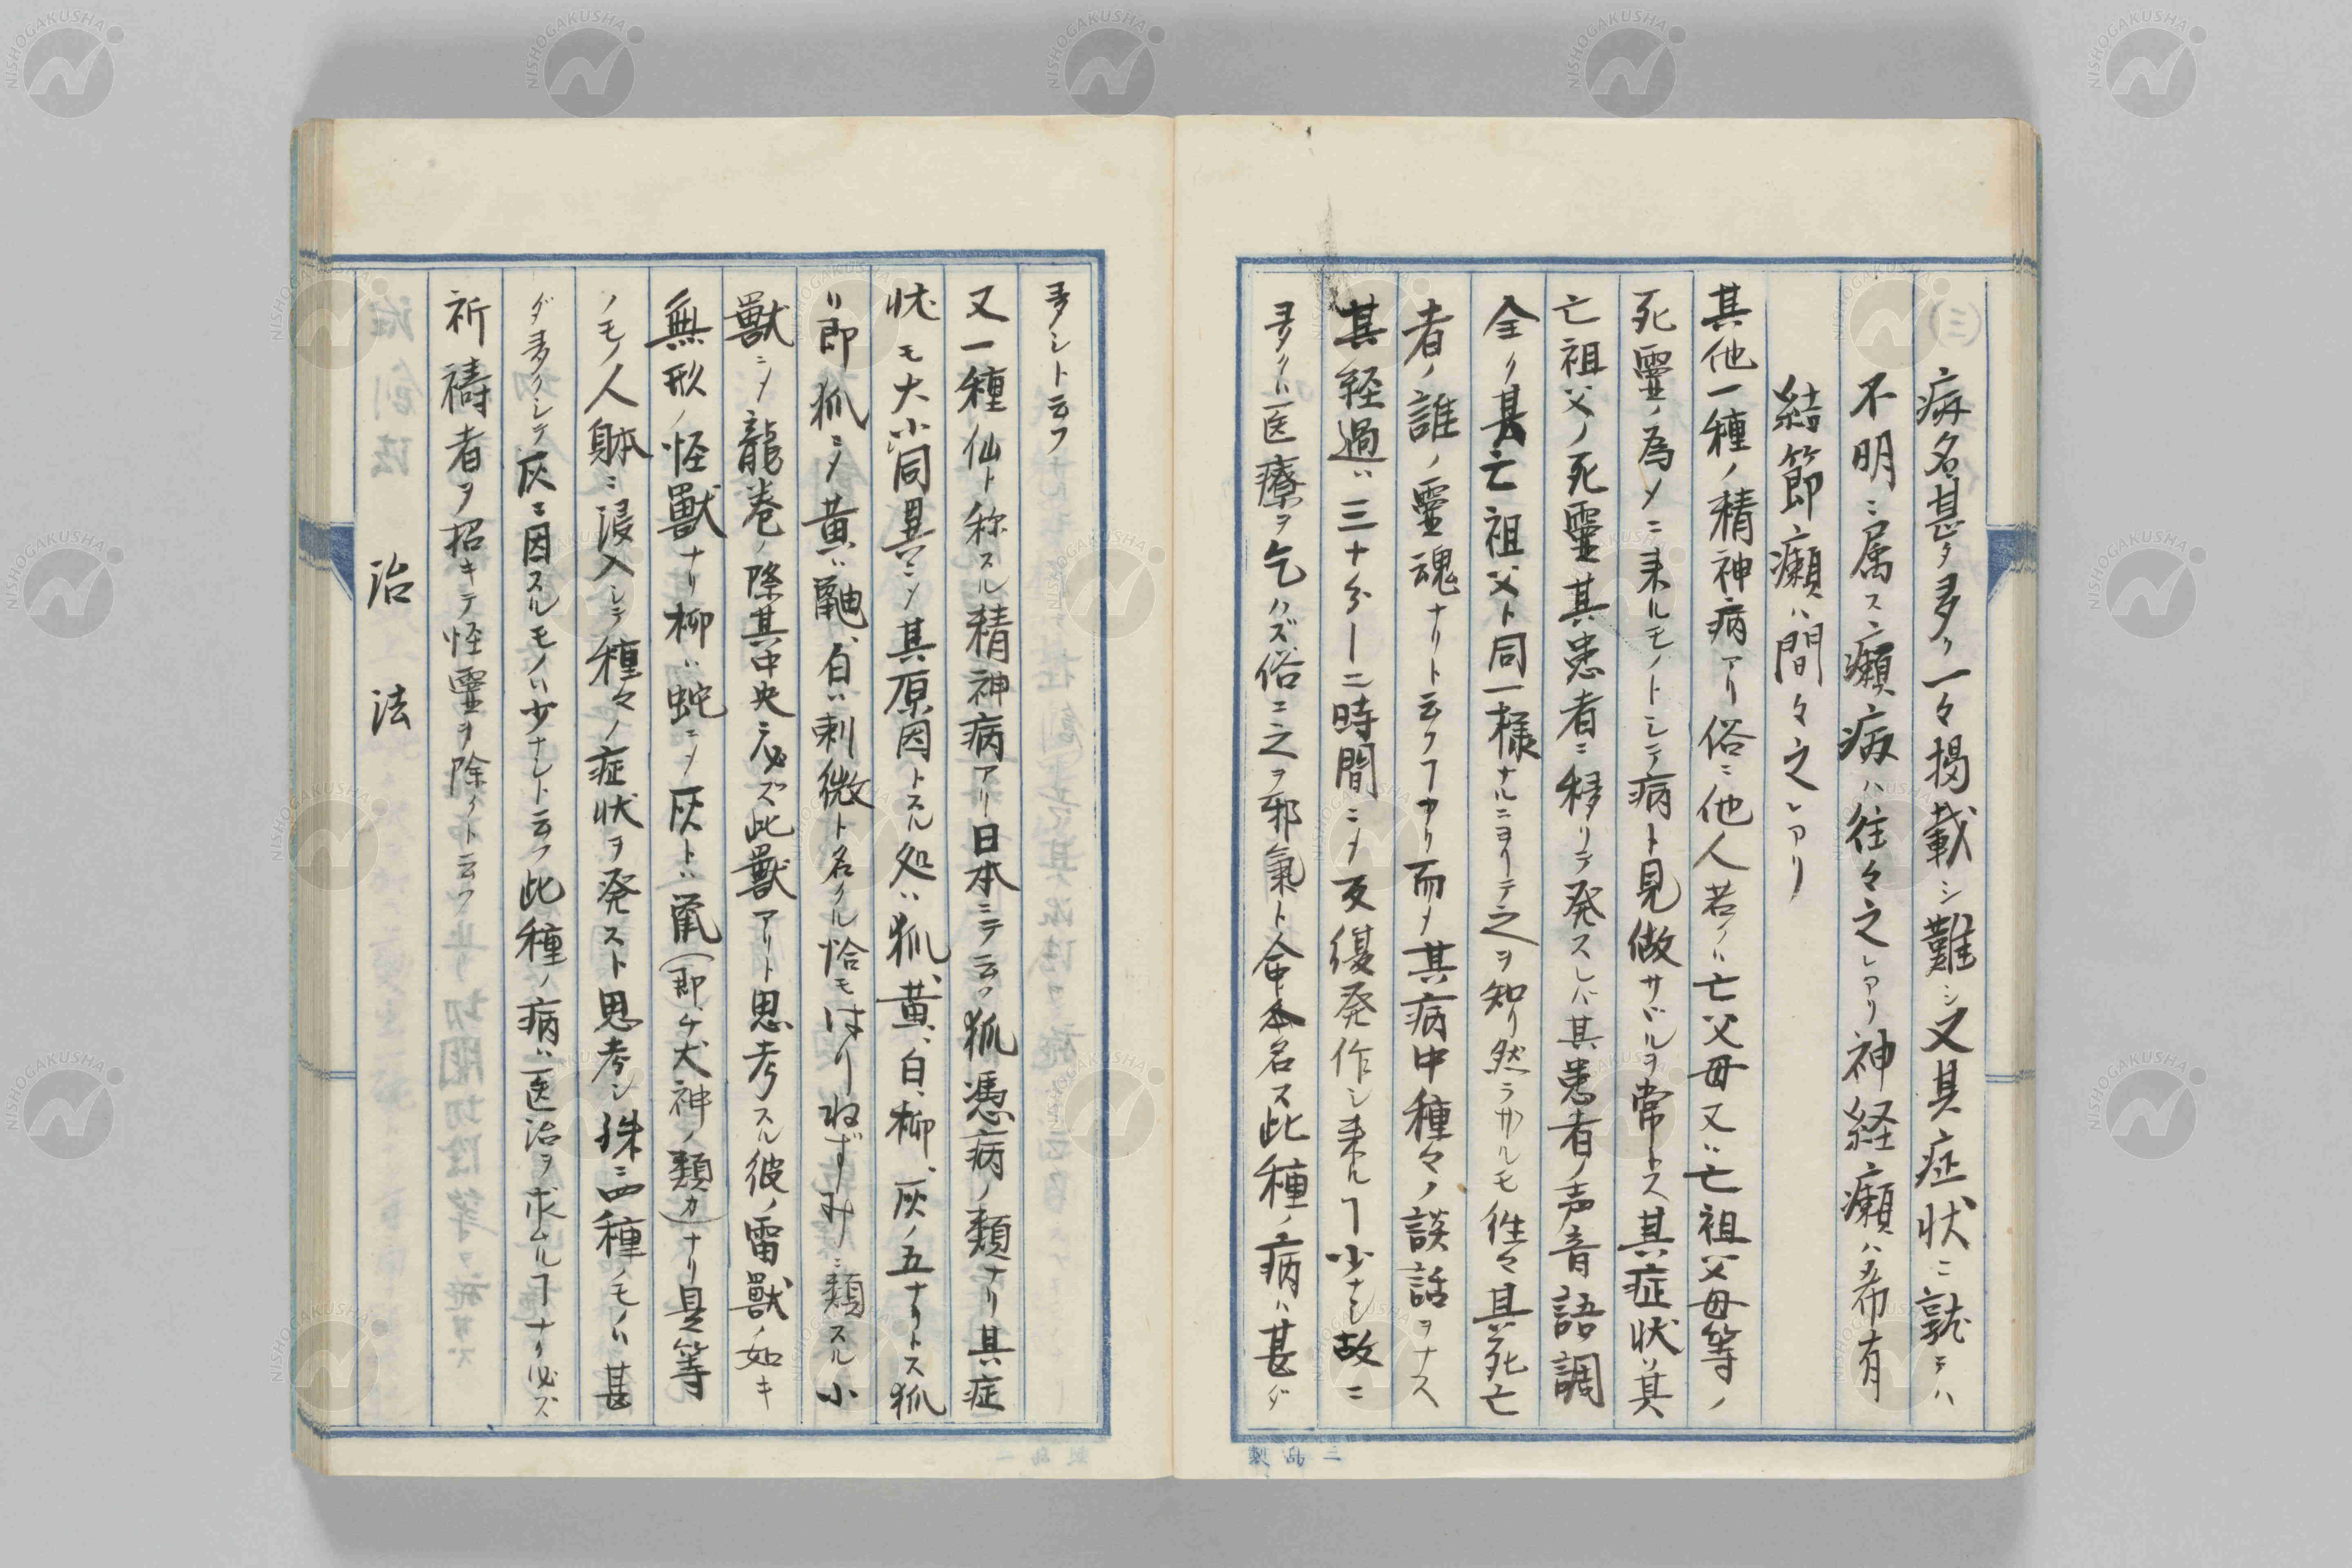 病名甚タ多ク一々掲載シ難シ又其症状ニ就テハ
不明ニ属ス癩病ハ往々之レアリ神経癩ハ希有
結節癩ハ間々之レアリ
其他一種ノ精神病アリ俗ニ他人若クハ亡父母又ハ亡祖父母等ノ
死霊ノ為メニ来ルモノトシテ病ト見做サヾルヲ常トス其症状ハ其
亡祖父ノ死霊其患者ニ移リテ発スレバ其患者ノ声音語調
全ク其亡祖父ト同一様ナルニヨリテ之ヲ知リ然ラザルモ往々其死亡
者ノ誰ノ霊魂ナリト云フヿアリ而〆其病中種々ノ談話ヲナス
其経過ハ三十分ー二時間ニ〆反復発作シ来ルヿ少ナシ故ニ
多クハ医療ヲ乞ハズ俗ニ之ヲ邪氣ト命名ス此種ノ病ハ甚ダ
多シト云フ
又一種仙ト称スル精神病アリ日本ニテ云フ狐憑病ノ類ナリ其症
状モ大小同異ニシ其原因トスル処ハ狐、黄、白、柳、灰ノ五ナリトス狐
ハ即狐ニ〆黄ハ鼬、白ハ刺微ト名クル恰モはりねずみニ類スル小
獣ニ〆龍巻ノ際其中央ニ必ズ此獣アリト思考スル彼ノ雷獣ノ如キ
無形ノ怪獣ナリ柳ハ蛇ニ〆灰トハ鼠(即チ犬神ノ類カ)ナリ是等
ノモノ人躰ニ浸入シテ種々ノ症状ヲ発スト思考シ殊ニ四種ノモノハ甚
ダ多クシテ灰ニ因スルモノハ少ナシト云フ此種ノ病ハ医治ヲ求ムルヿナク必ズ
祈禱者ヲ招キテ怪霊ヲ除クト云フ
治法